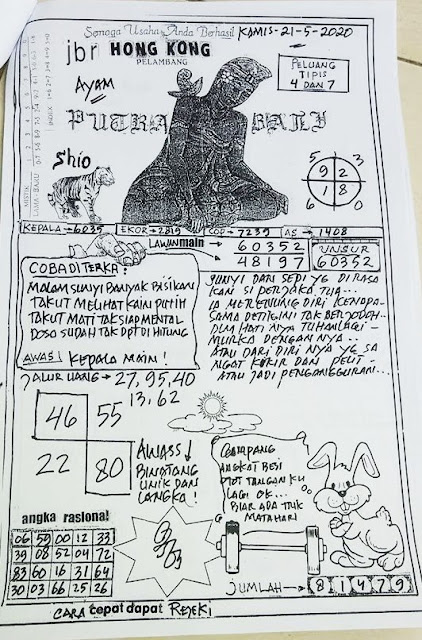 Semoga Usaha Anda Berhasil KAMIS-21-5-2020
jbr HONG KONG
PELAMBANG
PELUANG
TIPIS
4 DAN 7
AYAM
PUTRA BALI
Shio
5 3
9 2
1 8
6 0
MISTIK
LAMA-BARU
INDEX
KEPALA - 6035 EKOR = 2819 COP - 7239 AS → 1408
LAWAN main 60352
48197
UNSUR
60352
COBA DITERKA:
MALAM SUNYI BANYAK BISIKAN
TAKUT MELIHAT KAIN PUTIH
TAKUT MATI TAK SIAP MENTAL
DOSO SUDAH TAK DPT DI HITUNG
AWAS! KEPALA MAIN!
SUNYI DAN SEDI YG DIRASA
KAN SI PERJAKA TUA...
IA MERENUNG DIRI KENAPA
SAMA DETIGINI TAK BERJODOH..
DLM HATI NYA TUHAN LAGI
MURKA DENGAN NYA..
ATAU DARI DIRI NYA YG SA
NGAT KIKIR DAN PELIT -
ATAU JADI PENGANGGURAN...
JALUR UANG → 27, 95, 40
13, 62
46 55
22 80
AWASS ↓
BINATANG
UNIK DAN
LANGKA!
GAMPANG
ANGKAT BESI
OTOT TANGAN KU
LAGI OK...
BIAR ADA TTIK
MATAHARI
angka rasional
06 59 00 12 33
39 08 52 04 72
83 60 16 31 64
30 03 66 25 26
JUMLAH → 8 1 4 7 9
CARA cepat dapat REJEKI